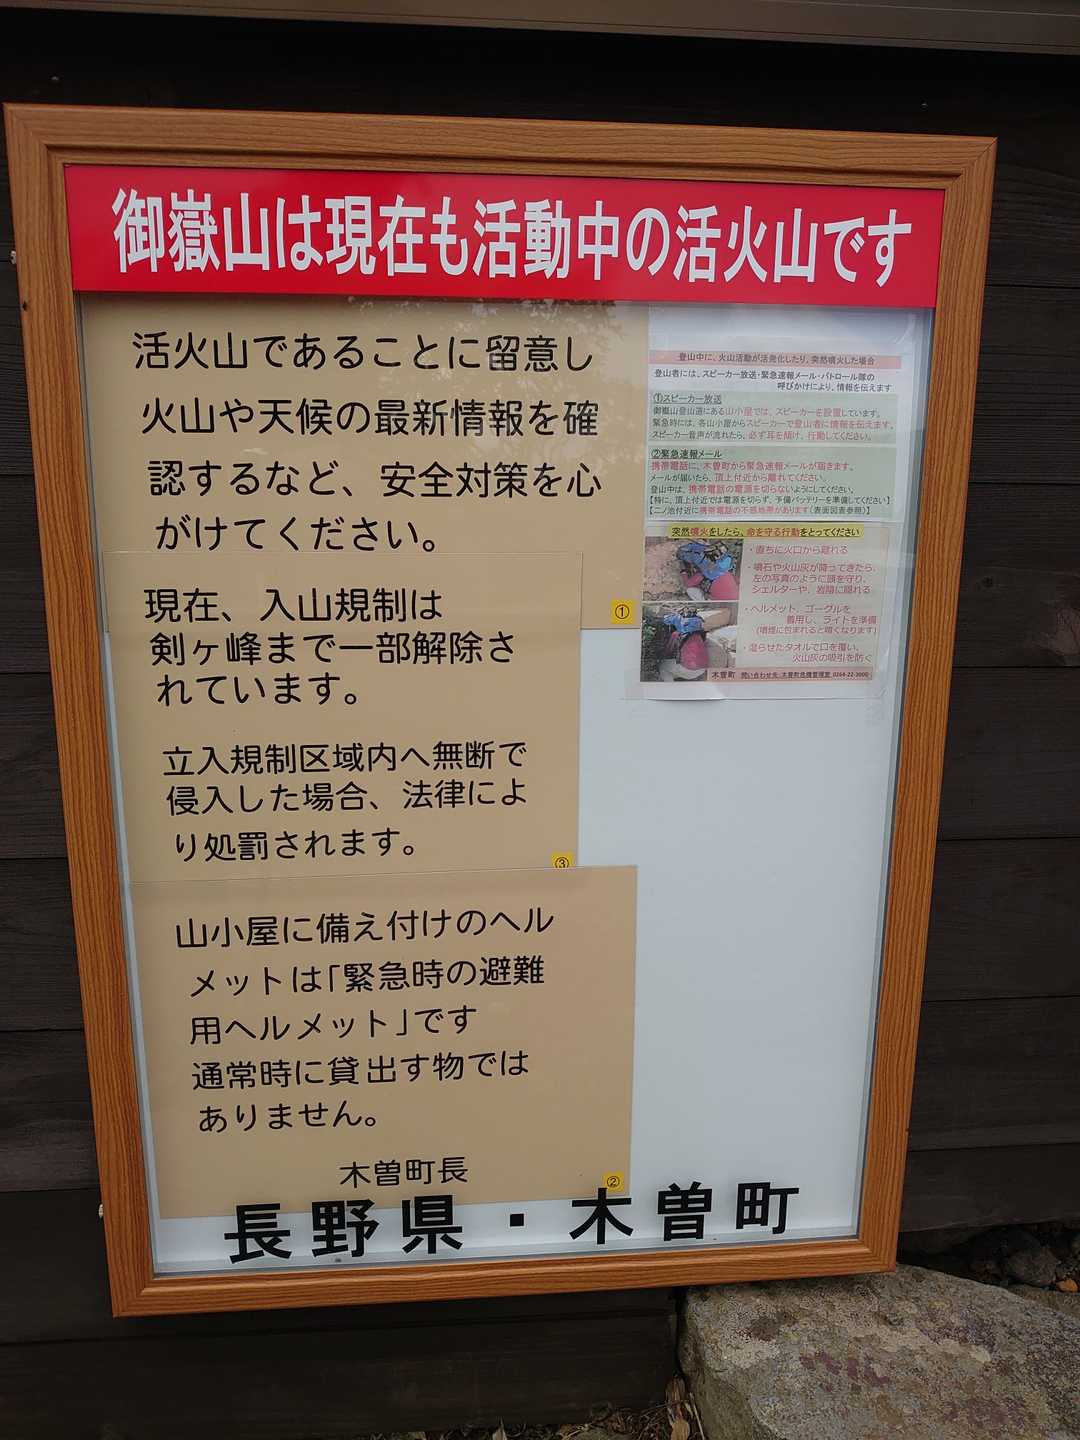 御嶽山は現在も活動中の活火山です
活火山であることに留意し
火山や天候の最新情報を確
認するなど、安全対策を心
がけてください。
①
現在、入山規制は
剣ヶ峰まで一部解除さ
れています。
立入規制区域内へ無断で
侵入した場合、法律によ
り処罰されます。
③
山小屋に備え付けのヘル
メットは｢緊急時の避難
用ヘルメット｣です
通常時に貸出す物では
ありません。
木曽町長
②
長野県・木曽町
登山中に、火山活動が活発化したり、突然噴火した場合
登山者には、スピーカー放送・緊急速報メール・パトロール隊の
呼びかけにより、情報を伝えます
①スピーカー放送
御嶽山登山道にある山小屋では、スピーカーを設置しています。
緊急時には、各山小屋からスピーカーで登山者に情報を伝えます。
スピーカー音声が流れたら、必ず耳を傾け、行動してください。
②緊急速報メール
携帯電話に、木曽町から緊急速報メールが届きます。
メールが届いたら、頂上付近から離れてください。
登山中は、携帯電話の電源を切らないようにしてください。
【特に、頂上付近では電源を切らず、予備バッテリーを準備してください】
【二ノ池付近に携帯電話の不感地帯があります（表面図表参照）】
突然噴火をしたら、命を守る行動をとってください
・直ちに火口から離れる
・噴石や火山灰が降ってきたら、
左の写真のように頭を守り、
シェルターや、岩陰に隠れる
・ヘルメット、ゴーグルを
着用し、ライトを準備
（噴煙に包まれると暗くなります）
・湿らせたタオルで口を覆い、
火山灰の吸引を防ぐ
木曽町 問い合わせ先：木曽町危機管理室 0264-22-3000